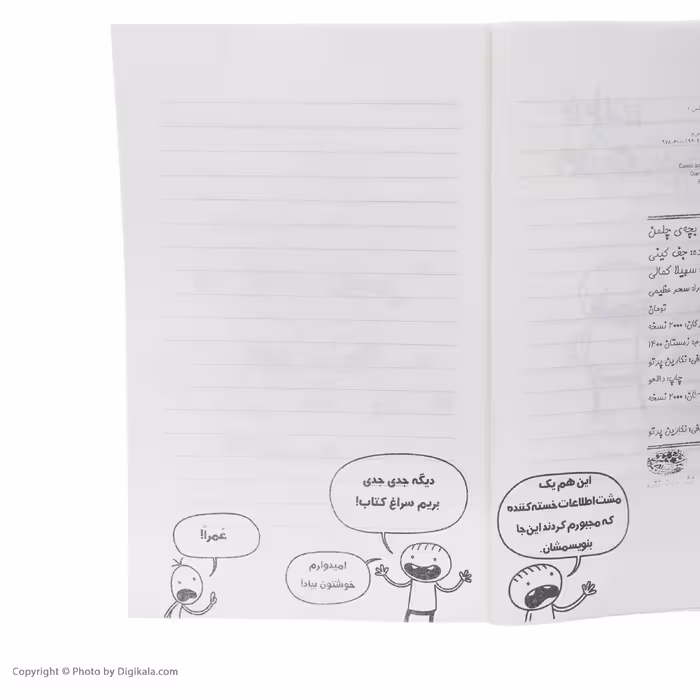 عَمراً!
دیگه جدی جدی
بریم سراغ کتاب!
امیدوارم
خوشتون بیاد!
بچه‌ی چلمن
جف کینی
سهیلا کمالی
سحر عظیمی
تومان
۲۰۰۰ نسخه
زمستان ۱۴۰۰
نگارین پرتو
چاپ: دالاهو
۲۰۰۰ نسخه
نگارین پرتو
این هم یک
مشت اطلاعات خسته‌کننده
که مجبورم کردند این‌جا
بنویسمشان.
Copyright © Photo by Digikala.com